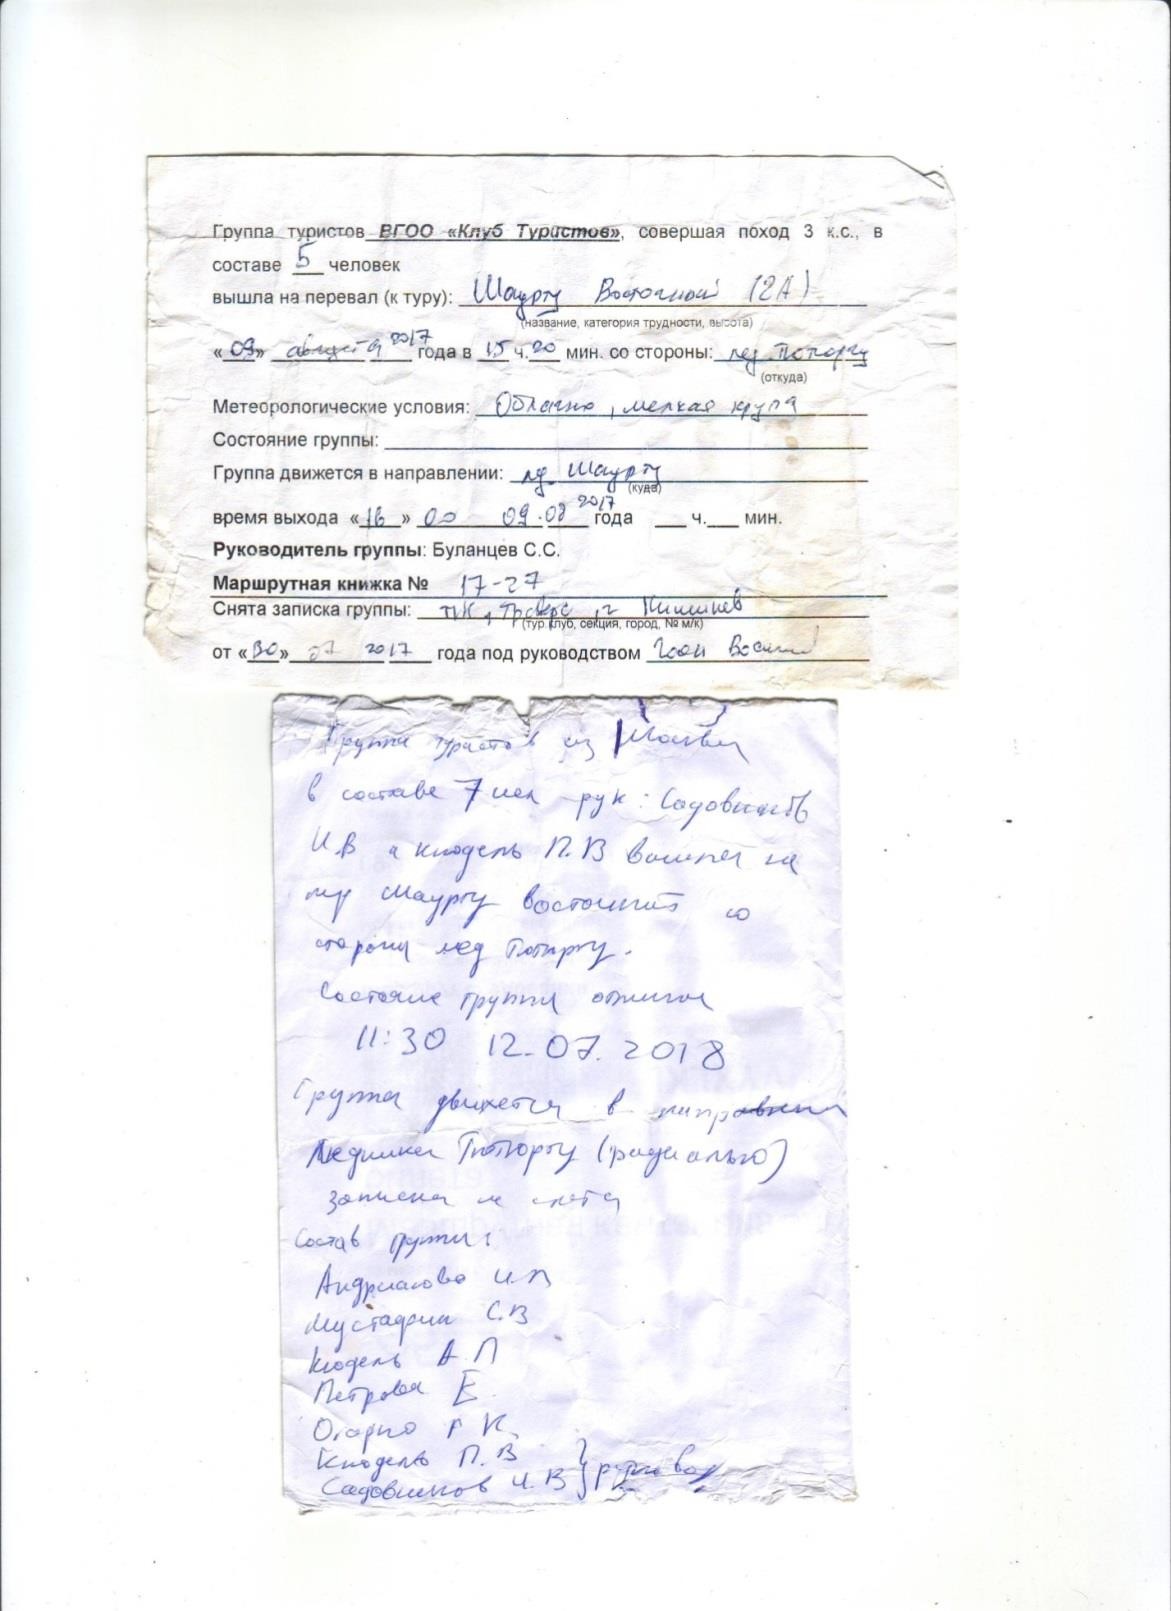 Группа туристов ВГОО «Клуб Туристов», совершая поход 3 к.с., в
составе 5 человек
вышла на перевал (к туру): Шаурту Восточный (2А)
(название, категория трудности, высота)
«09» августа 2017 года в 15 ч. 20 мин. со стороны:
(откуда)
Метеорологические условия: Облачно, мелкая крупа
Состояние группы:
Группа движется в направлении: лд. Шаурту
(куда)
время выхода «16» 00 09.08 2017 года ч. мин.
Руководитель группы: Буланцев С.С.
Маршрутная книжка № 17-27
Снята записка группы: г. Кишинев
(тур.клуб, секция, город, № м/к)
от «30» 07 2017 года под руководством
Группа туристов из Москвы
в составе 7 чел рук:
И.В и Кнодель П.В на
Шаурту восточный со
стороны лед
Состояние группы отличное
11:30 12.07.2018
Группа движется в
Ледника (радиально)
записка не снята
Состав группы:
И.П
Мустафин С.В
Кнодель А.П
Петрова Е.
К.
Кнодель П.В
Садовников И.В